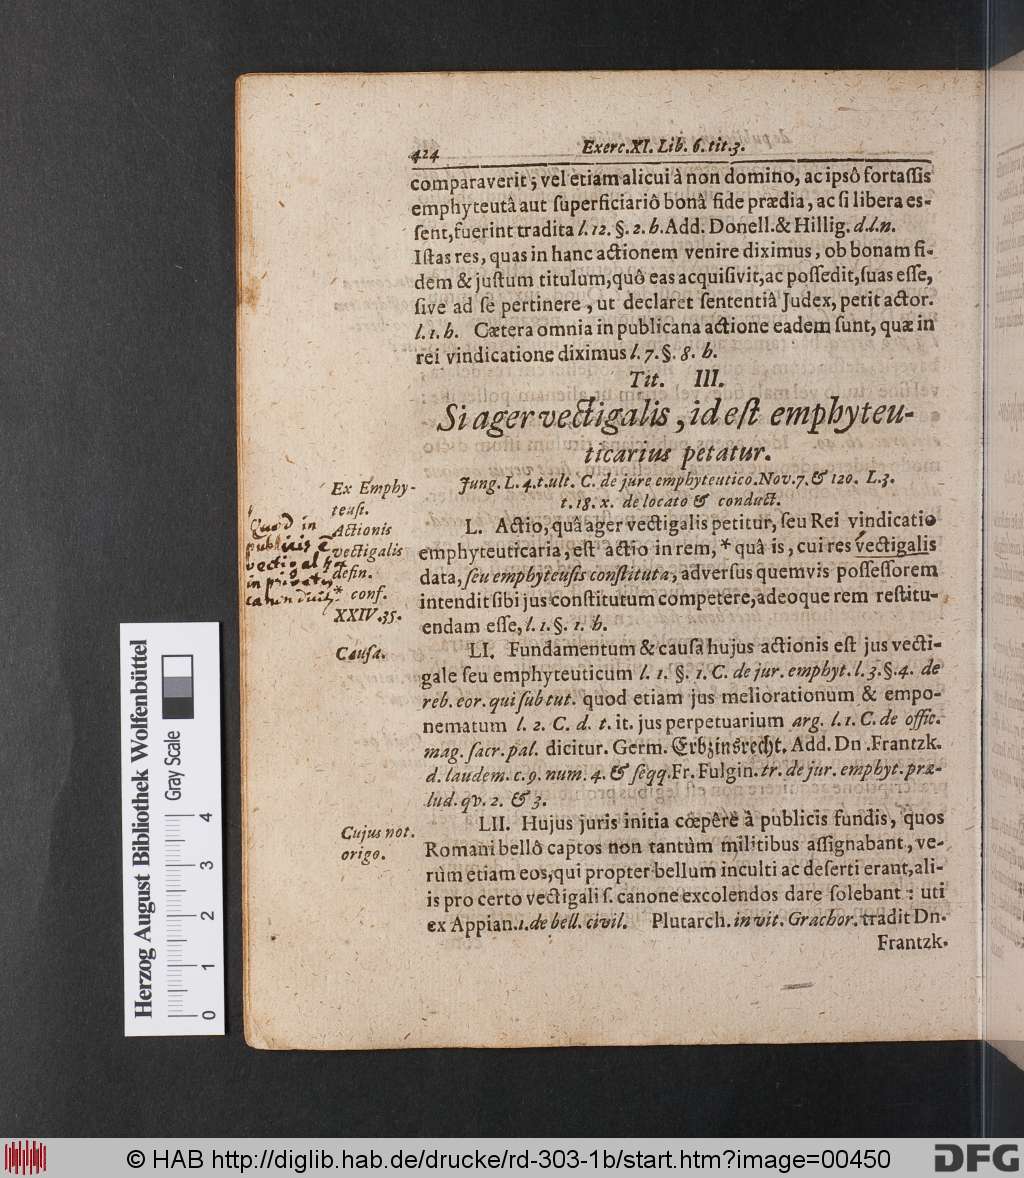 424
Exerc.XI. Lib. 6. tit.3.
comparaverit; vel etiam alicui à non domino, ac ipsô fortaſſis
emphyteutâ aut ſuperficiariô bonâ fide prædia, ac ſi libera eſ-
ſent, fuerint tradita l. 12. §. 2. h. Add. Donell. & Hillig. d.l.n.
Iſtas res, quas in hanc actionem venire diximus, ob bonam fi-
dem & juſtum titulum, quô eas acquiſivit, ac poſſedit, ſuas eſſe,
ſive ad ſe pertinere, ut declaret ſententiâ Judex, petit actor.
l. 1. h. Cætera omnia in publicana actione eadem ſunt, quæ in
rei vindicatione diximus l. 7. §. 8. h.
Tit. III.
Si ager vectigalis, id eſt emphyteu-
ticarius petatur.
Jung. L. 4. t. ult. C. de jure emphyteutico. Nov. 7. & 120. L. 3.
t. 18. x. de locato & conduct.
Ex Emphy-
teuſi.
Actionis
vectigalis
defin.
* conf.
XXIV. 35.
Quod in
publicis
vectigal
in privatis
canon
L. Actio, quâ ager vectigalis petitur, ſeu Rei vindicatio
emphyteuticaria, eſt actio in rem, * quâ is, cui res vectigalis
data, ſeu emphyteuſis conſtituta, adverſus quemvis poſſeſſorem
intendit ſibi jus conſtitutum competere, adeoque rem reſtitu-
endam eſſe, l. 1. §. 1. h.
Cauſa.
LI. Fundamentum & cauſa hujus actionis eſt jus vecti-
gale ſeu emphyteuticum l. 1. §. 1. C. de jur. emphyt. l. 3. §. 4. de
reb. eor. qui ſub tut. quod etiam jus meliorationum & empo-
nematum l. 2. C. d. t. it. jus perpetuarium arg. l. 1. C. de offic.
mag. ſacr. pal. dicitur. Germ. Erbzinsrecht. Add. Dn. Frantzk.
d. laudem. c. 9. num. 4. & ſeqq. Fr. Fulgin. tr. de jur. emphyt. præ-
lud. qv. 2. & 3.
Cujus not.
origo.
LII. Hujus juris initia cœpêre à publicis fundis, quos
Romani bellô captos non tantùm militibus aſſignabant, ve-
rùm etiam eos, qui propter bellum inculti ac deſerti erant, ali-
is pro certo vectigali ſ. canone excolendos dare ſolebant: uti
ex Appian. 1. de bell. civil. Plutarch. in vit. Grachor. tradit Dn.
Frantzk.
Herzog August Bibliothek Wolfenbüttel
Gray Scale
0 1 2 3 4
© HAB http://diglib.hab.de/drucke/rd-303-1b/start.htm?image=00450
DFG